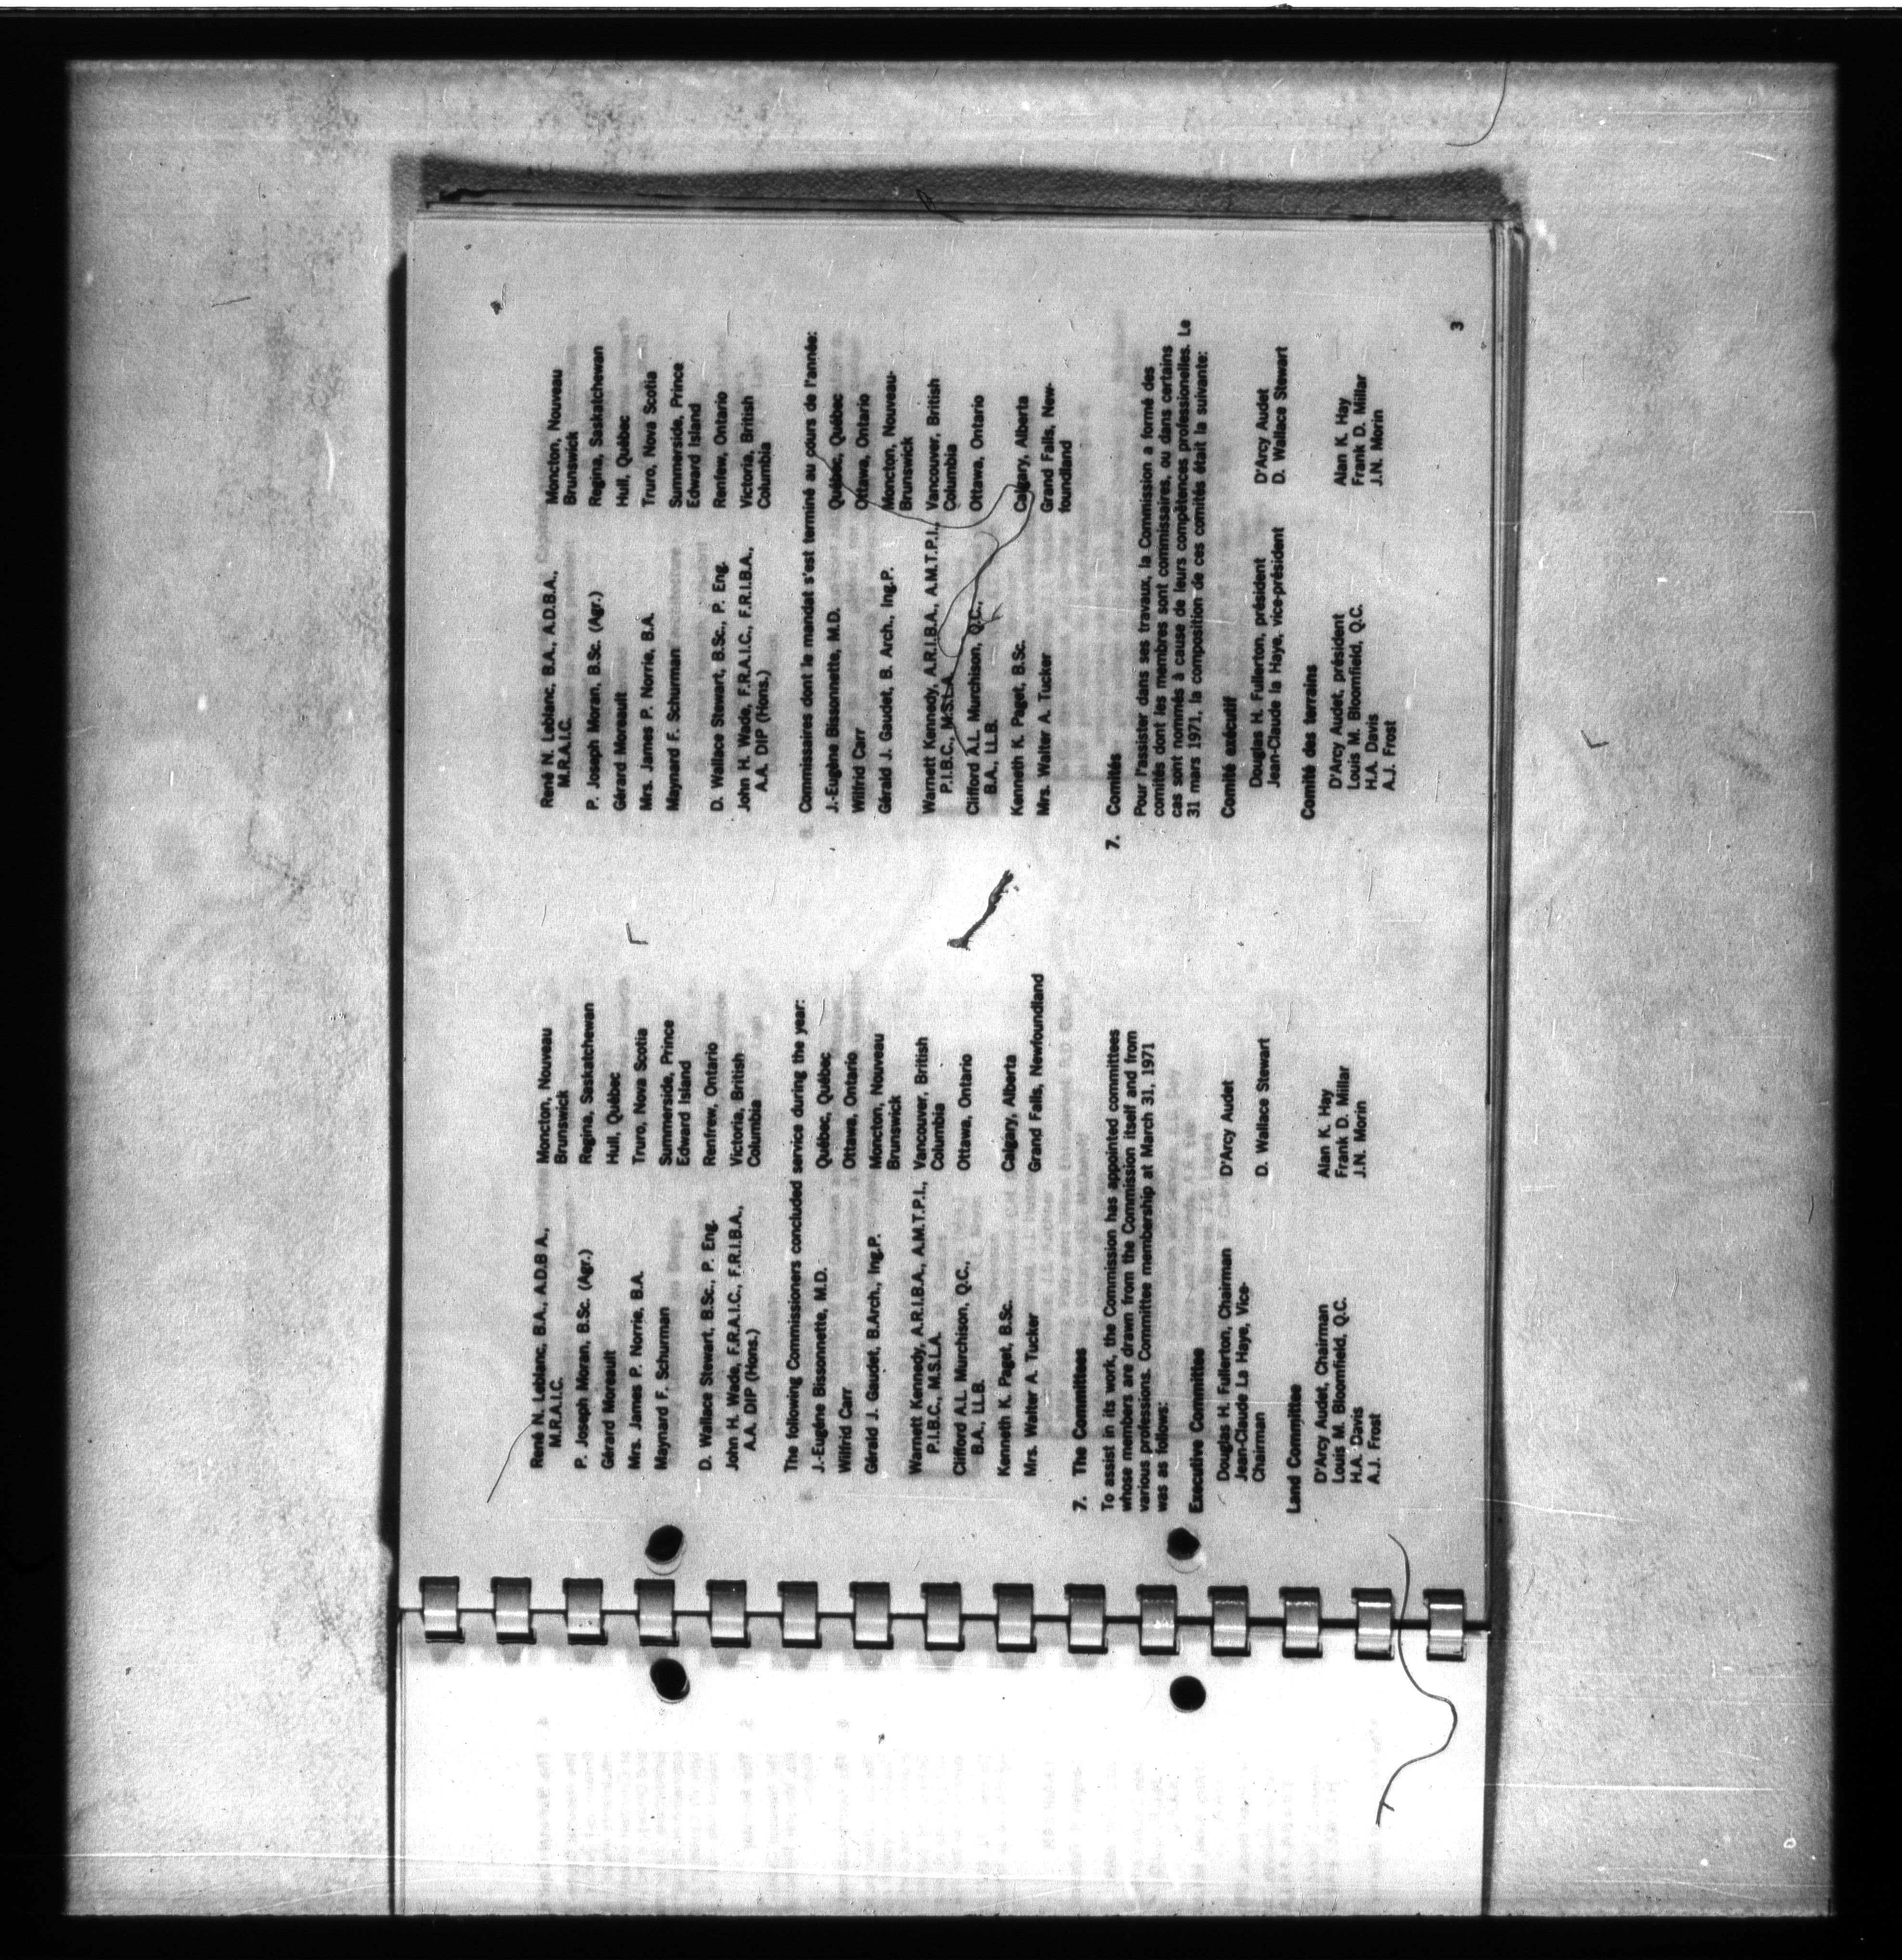 René N. Leblanc, B.A., A.D.B.A., Moncton, Nouveau
M.R.A.I.C. Brunswick
P. Joseph Moran, B.Sc. (Agr.) Regina, Saskatchewan
Gérard Moreault Hull, Québec
Mrs. James P. Norrie, B.A. Truro, Nova Scotia
Maynard F. Schurman Summerside, Prince
Edward Island
D. Wallace Stewart, B.Sc., P. Eng. Renfrew, Ontario
John H. Wade, F.R.A.I.C., F.R.I.B.A., Victoria, British
A.A. DIP (Hons.) Columbia
The following Commissioners concluded service during the year:
J.-Eugène Bissonnette, M.D. Québec, Québec
Wilfrid Carr Ottawa, Ontario
Gérald J. Gaudet, B.Arch., Ing.P. Moncton, Nouveau
Brunswick
Warnett Kennedy, A.R.I.B.A., A.M.T.P.I., Vancouver, British
P.I.B.C., M.S.L.A. Columbia
Clifford A.L. Murchison, Q.C., Ottawa, Ontario
B.A., LL.B.
Kenneth K. Paget, B.Sc. Calgary, Alberta
Mrs. Walter A. Tucker Grand Falls, Newfoundland
7. The Committees
To assist in its work, the Commission has appointed committees
whose members are drawn from the Commission itself and from
various professions. Committee membership at March 31, 1971
was as follows:
Executive Committee
Douglas H. Fullerton, Chairman D'Arcy Audet
Jean-Claude La Haye, Vice-
Chairman D. Wallace Stewart
Land Committee
D'Arcy Audet, Chairman Alan K. Hay
Louis M. Bloomfield, Q.C. Frank D. Millar
H.A. Davis J.N. Morin
A.J. Frost
René N. Leblanc, B.A., A.D.B.A., Moncton, Nouveau
M.R.A.I.C. Brunswick
P. Joseph Moran, B.Sc. (Agr.) Regina, Saskatchewan
Gérard Moreault Hull, Québec
Mrs. James P. Norrie, B.A. Truro, Nova Scotia
Maynard F. Schurman Summerside, Prince
Edward Island
D. Wallace Stewart, B.Sc., P. Eng. Renfew, Ontario
John H. Wade, F.R.A.I.C., F.R.I.B.A., Victoria, British
A.A. DIP (Hons.) Columbia
Commissaires dont le mandat s'est terminé au cours de l'année:
J.-Eugène Bissonnette, M.D. Québec, Québec
Wilfrid Carr Ottawa, Ontario
Gérald J. Gaudet, B. Arch., Ing.P. Moncton, Nouveau-
Brunswick
Warnett Kennedy, A.R.I.B.A., A.M.T.P.I., Vancouver, British
P.I.B.C., M.S.L.A. Columbia
Clifford A.L. Murchison, Q.C., Ottawa, Ontario
B.A., LL.B.
Kenneth K. Paget, B.Sc. Calgary, Alberta
Mrs. Walter A. Tucker Grand Falls, New-
foundland
7. Comités
Pour l'assister dans ses travaux, la Commission a formé des
comités dont les membres sont commissaires, ou dans certains
cas sont nommés à cause de leurs compétences professionelles. Le
31 mars 1971, la composition de ces comités était la suivante:
Comité exécutif
Douglas H. Fullerton, président D'Arcy Audet
Jean-Claude la Haye, vice-président D. Wallace Stewart
Comité des terrains
D'Arcy Audet, président Alan K. Hay
Louis M. Bloomfield, Q.C. Frank D. Millar
H.A. Davis J.N. Morin
A.J. Frost
3